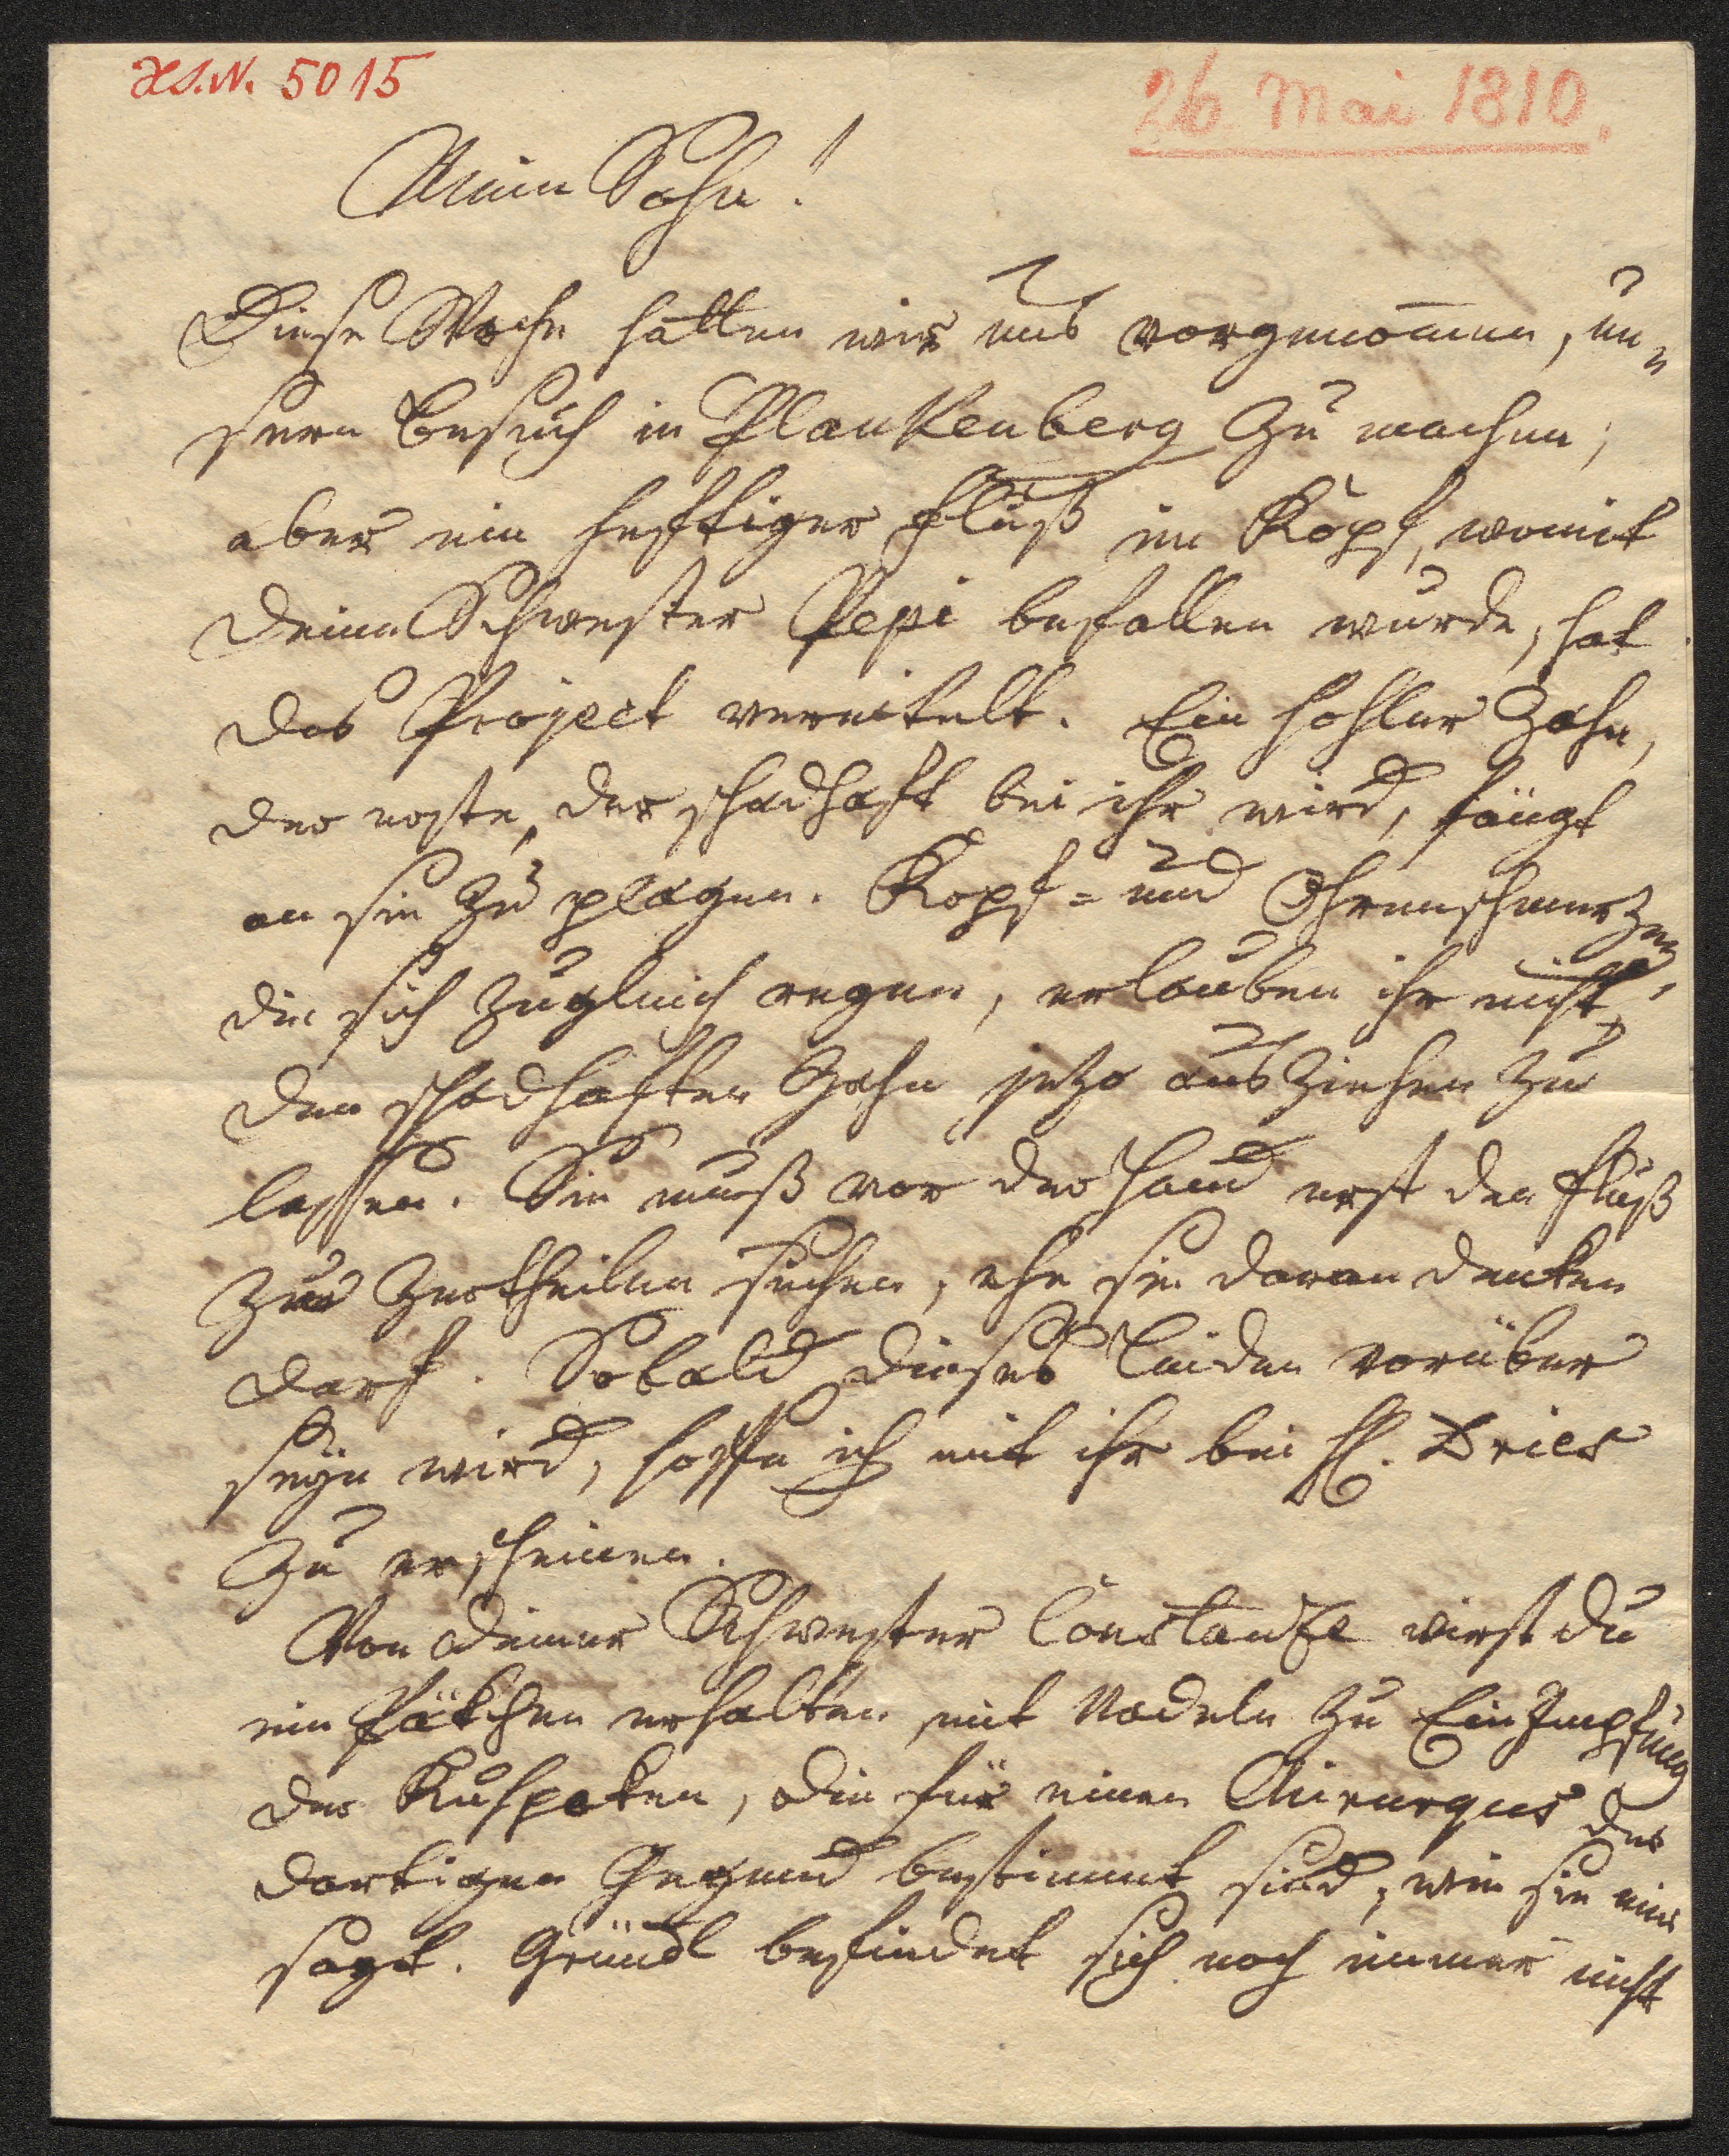 H.I.N. 5015
26 Mai 1810.
Mein Sohn!
Diese Woche hatten wir uns vorgenom̄en, un„
sern Besuch in Plankenberg zu machen;
aber ein heftiger Fluß im Kopf, womit
deine Schwester Pepi befallen wurde, hat
das Project vereitelt. Ein hohler Zahn,
der erste, der schadhaft bei ihr wird, fängt
an sie zu plagen. Kopf= und Ohrenschmerzen,
die sich zugleich regen, erlauben ihr nicht,
den schadhaften Zahn jetzo ausziehen zu
lassen. Sie muß vor der Hand erst den Fluß
zu zertheilen suchen, ehe sie daran denken
darf. Sobald dieses Leiden vorüber
seyn wird, hoffe ich mit ihr bei H. Dries
zu erscheinen.
Von deiner Schwester Constanze wirst du
ein Päkchen erhalten mit Nadeln zu Einimpfung
der Kuhpoken, die für einen Chirurgus der
dortigen Gegend bestimmt sind, wie sie mir
sagt. Gründl befindet sich noch immer nicht